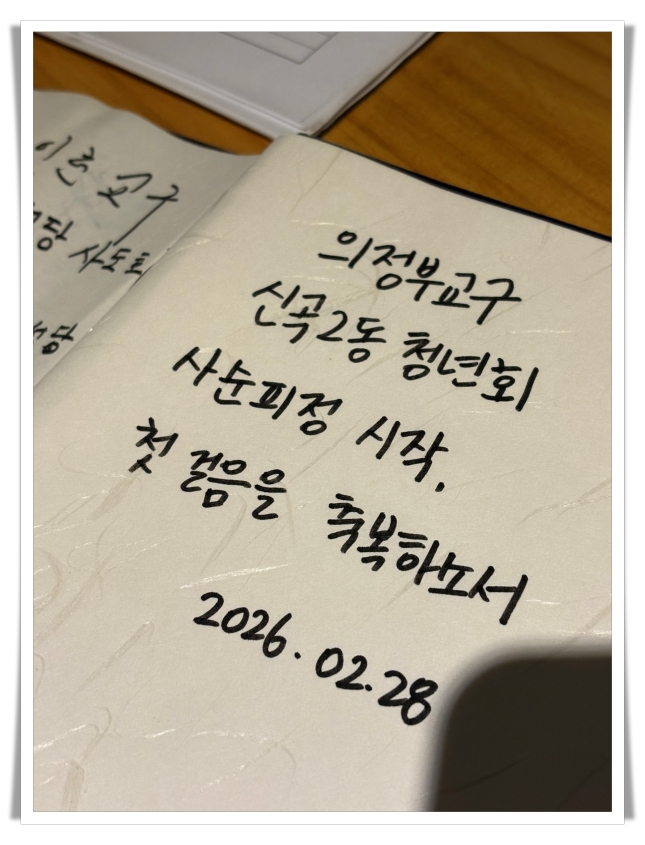 교구
사도
의정부교구
신곡2동 청년회
사순피정 시작,
첫 걸음을 축복하소서
2026. 02.28